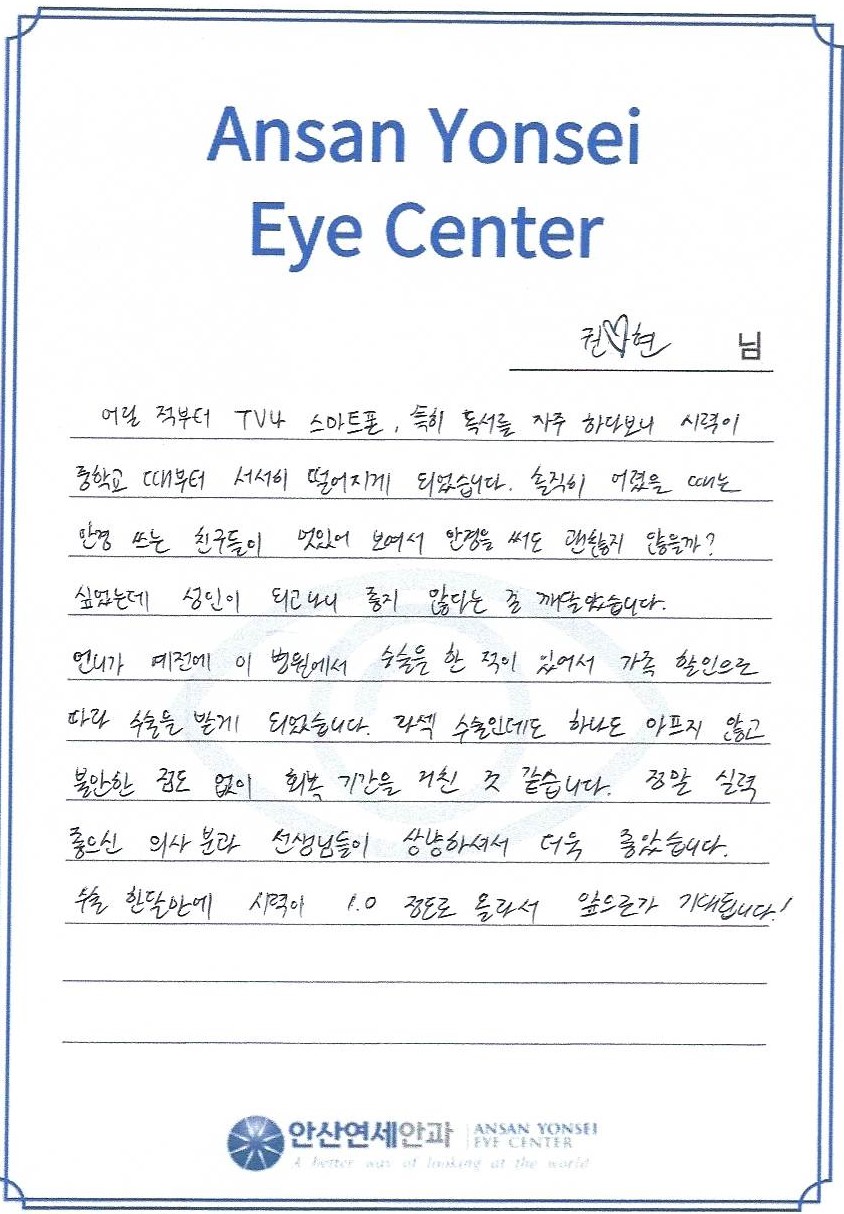 Ansan Yonsei
Eye Center
권♡현 님
어릴 적부터 TV나 스마트폰, 특히 독서를 자주 하다보니 시력이
중학교 때부터 서서히 떨어지게 되었습니다. 솔직히 어렸을 때는
안경 쓰는 친구들이 멋있어 보여서 안경을 써도 괜찮지 않을까?
싶었는데 성인이 되고나니 좋지 않다는 걸 깨달았습니다.
언니가 예전에 이 병원에서 수술을 한 적이 있어서 가족 할인으로
따라 수술을 받게 되었습니다. 라섹 수술인데도 하나도 아프지 않고
불안한 점도 없이 회복 기간을 거친 것 같습니다. 정말 실력
좋으신 의사 분과 선생님들이 상냥하셔서 더욱 좋았습니다.
수술 한달안에 시력이 1.0 정도로 올라서 앞으로가 기대됩니다!
안산연세안과 ANSAN YONSEI
EYE CENTER
A better way of looking at the world